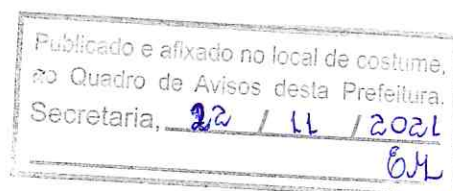 Publicado e afixado no local de costume,
no Quadro de Avisos desta Prefeitura.
Secretaria, 22 / 11 / 2021
EM